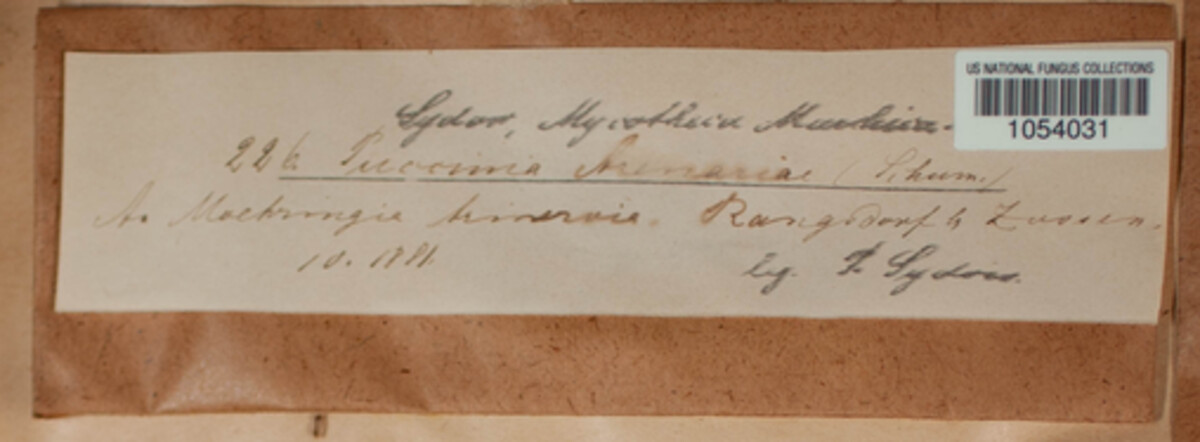 US NATIONAL FUNGUS COLLECTIONS
1054031
Sydow, Mycotheca Marchica.
226 Puccinia Arenariae (Schum.)
A. Moehringia trinervia. Rangsdorf b Zossen.
10. 1881.
leg. P. Sydow.